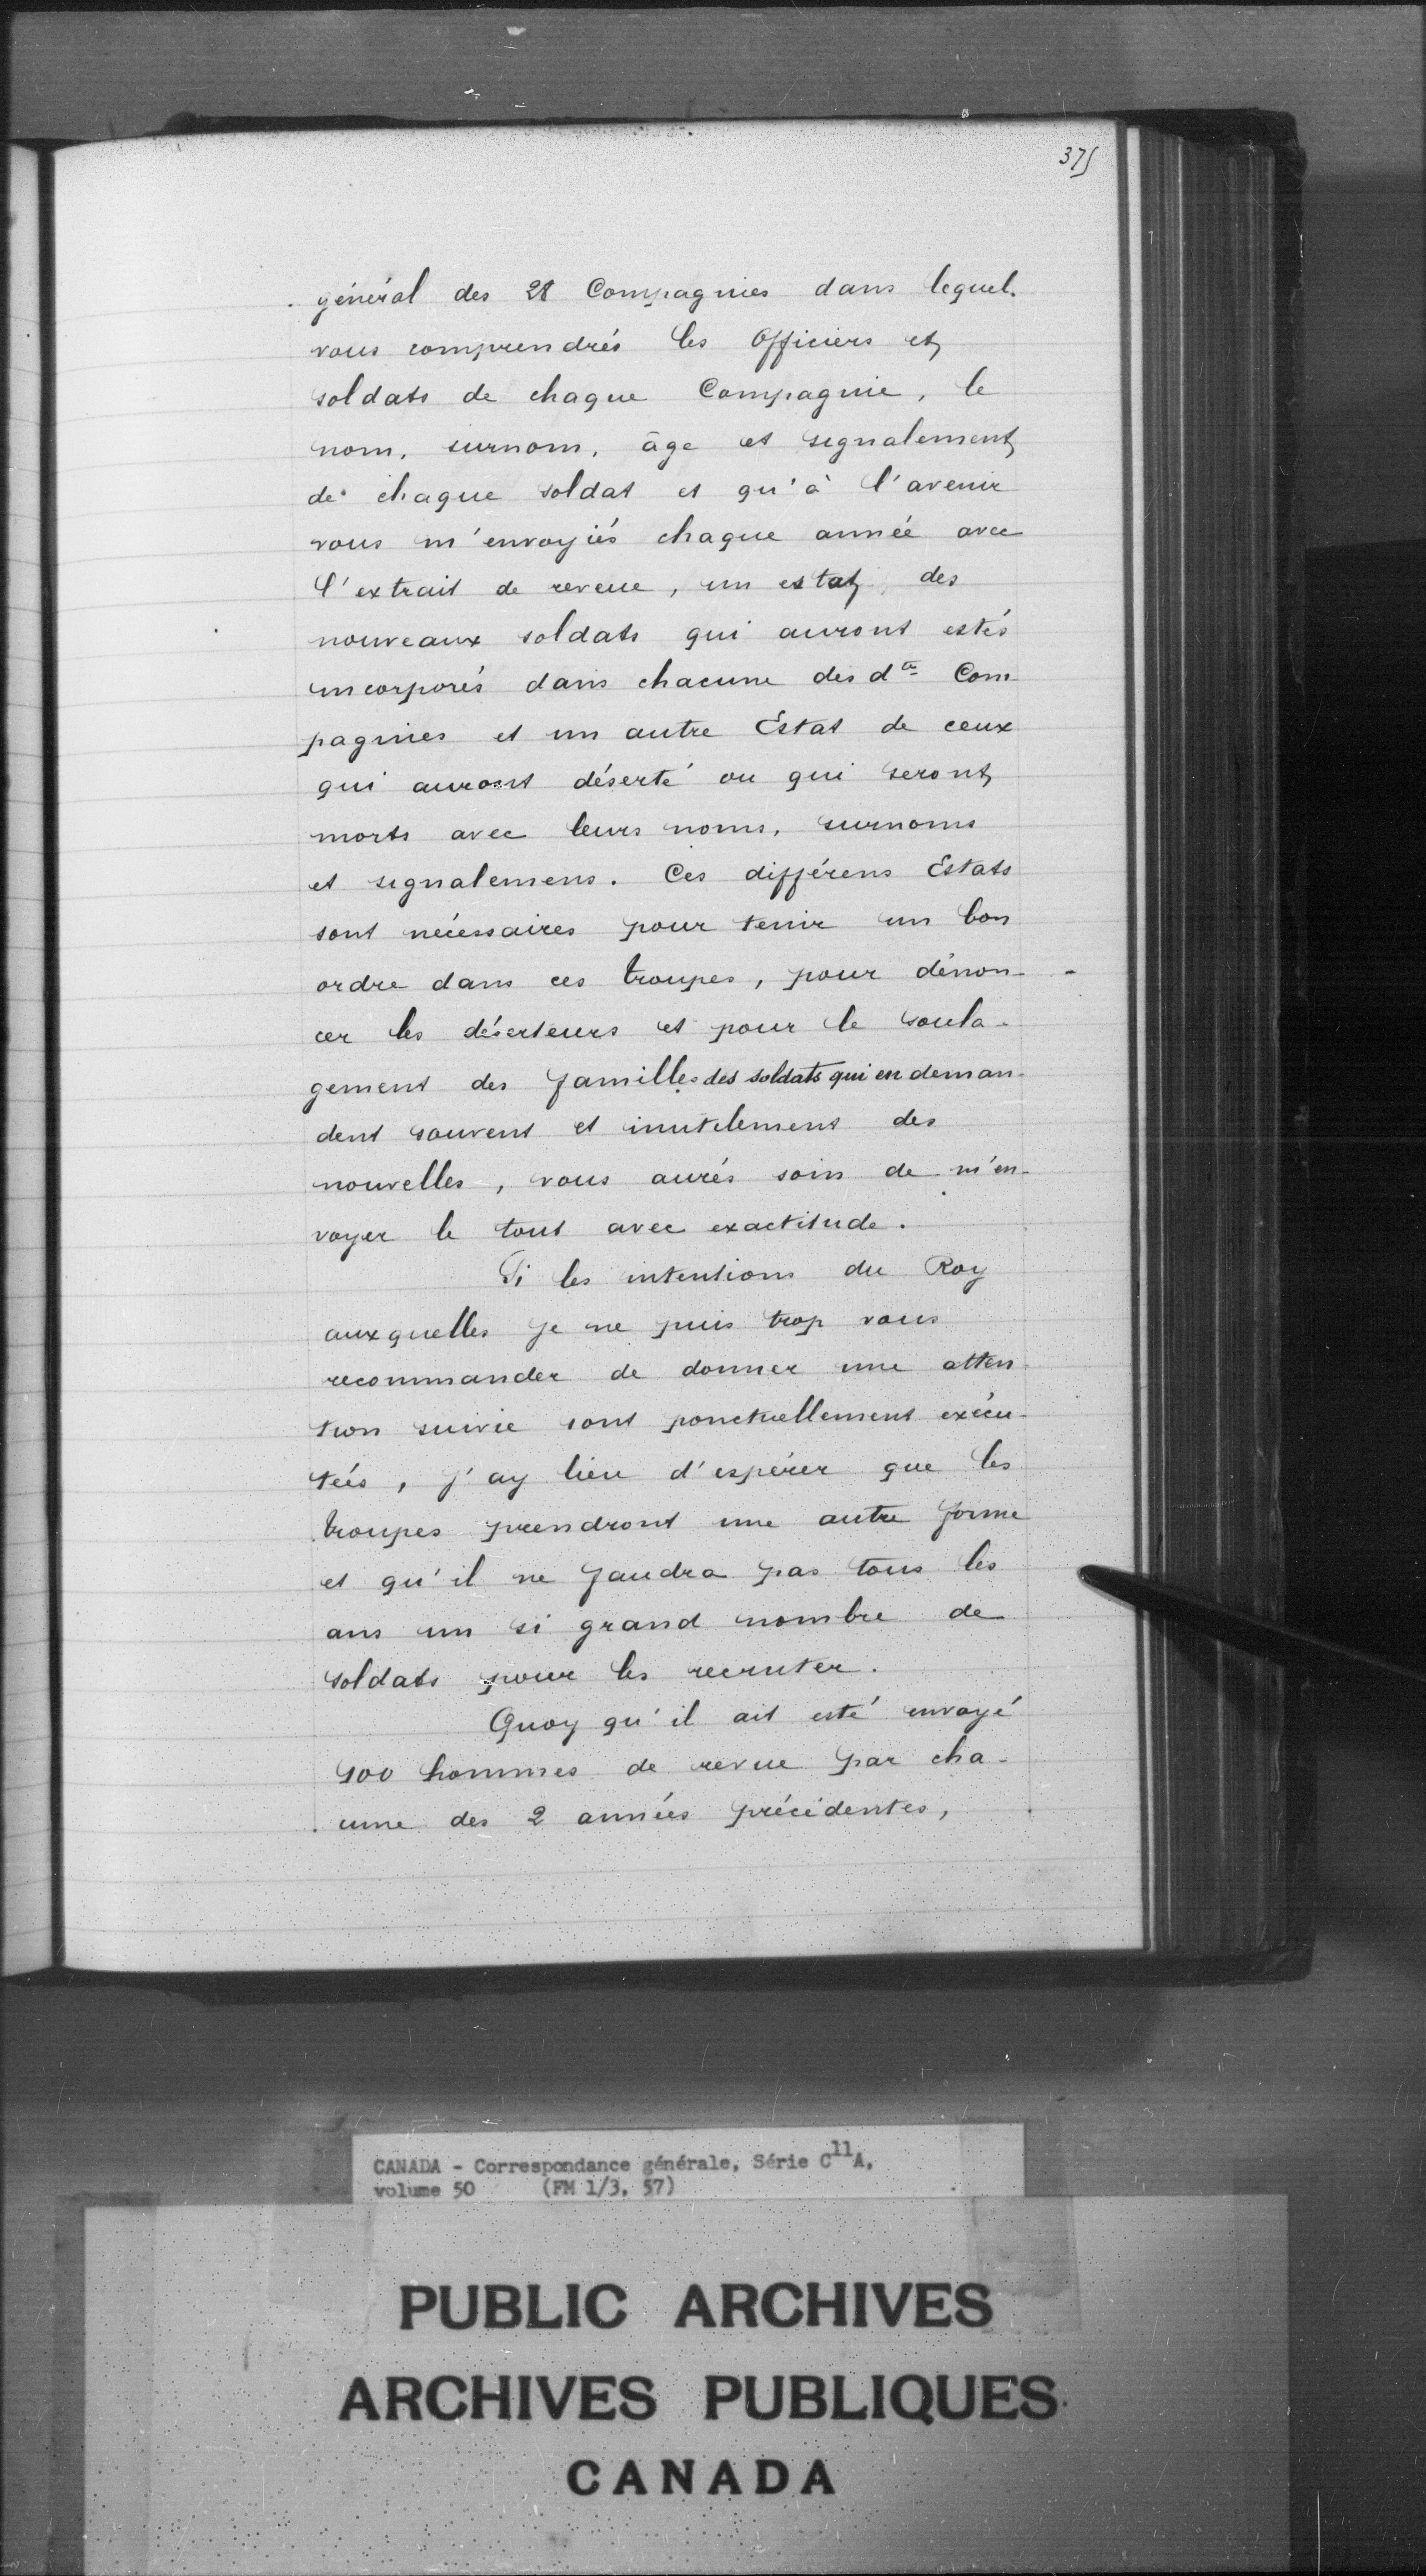 375
général des 28 Compagnies dans lequel
vous comprendrés les Officiers et
soldats de chaque Compagnie, le
nom, surnom, âge et signalement
de chaque soldat et qu'à l'avenir
vous m'envoyiés chaque année avec
l'extrait de reveue, un estat des
nouveaux soldats qui auront estés
incorporés dans chacune des dtes Com
pagnies et un autre Estat de ceux
qui auront déserté ou qui seront
morts avec leurs noms, surnoms
et signalemens. Ces différens Estats
sont nécessaires pour tenir un bon
ordre dans ces troupes, pour dénon-
cer les déserteurs et pour le soula-
gement des familles des soldats qui en deman-
dent souvent et inutilement des
nouvelles, vous aurés soin de m'en-
voyer le tout avec exactitude.
Si les intentions du Roy
auxquelles je ne puis trop vous
recommander de donner une atten
tion suivie sont ponctuellement exécu-
tées, j'ay lieu d'espérer que les
troupes prendront une autre forme
et qu'il ne faudra pas tous les
ans un si grand nombre de
soldats pour les recruter.
Quoy qu'il ait esté envoyé
hommes de revue par cha-
cune des 2 années précédentes,
CANADA - Correspondance générale, Série C11A,
volume 50 (FM 1/3, 57)
PUBLIC ARCHIVES
ARCHIVES PUBLIQUES
CANADA